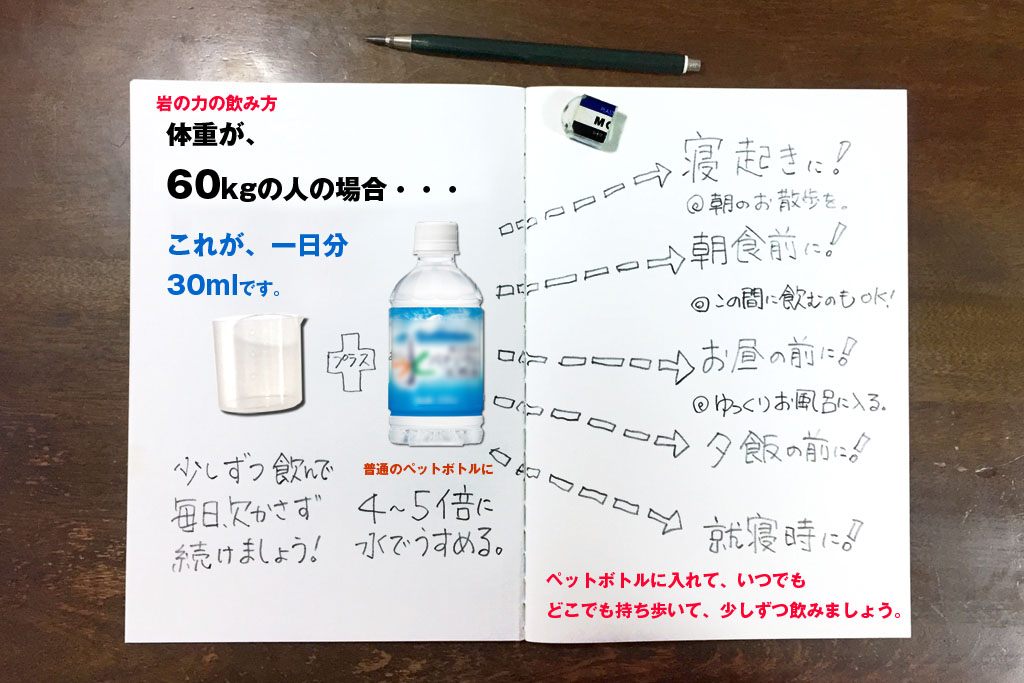 岩の力の飲み方
体重が、
60kgの人の場合・・・
これが、一日分
30mlです。
プラス
少しずつ飲んで
毎日、欠かさず
続けましょう!
普通のペットボトルに
4〜5倍に
水でうすめる。
寝起きに!
@朝のお散歩を。
朝食前に!
@この間に飲むのもOK!
お昼の前に!
@ゆっくりお風呂に入る。
夕飯の前に!
就寝時に!
ペットボトルに入れて、いつでも
どこでも持ち歩いて、少しずつ飲みましょう。